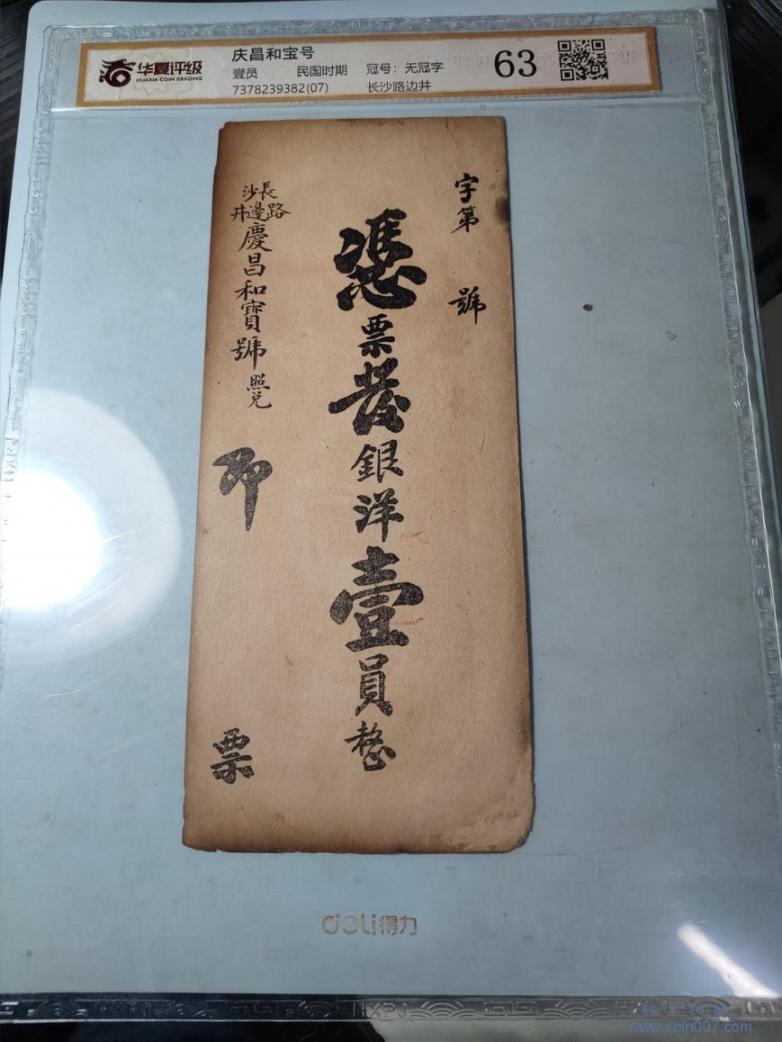 华夏评级
HUAXIA COIN GRADING
庆昌和宝号
壹员 民国时期 冠号：无冠字
7378239382(07) 长沙路边井
63
字第 號
憑票發銀洋壹員整
長沙路邊井慶昌和寶號照兑
即票
deli得力
www.coin007.com